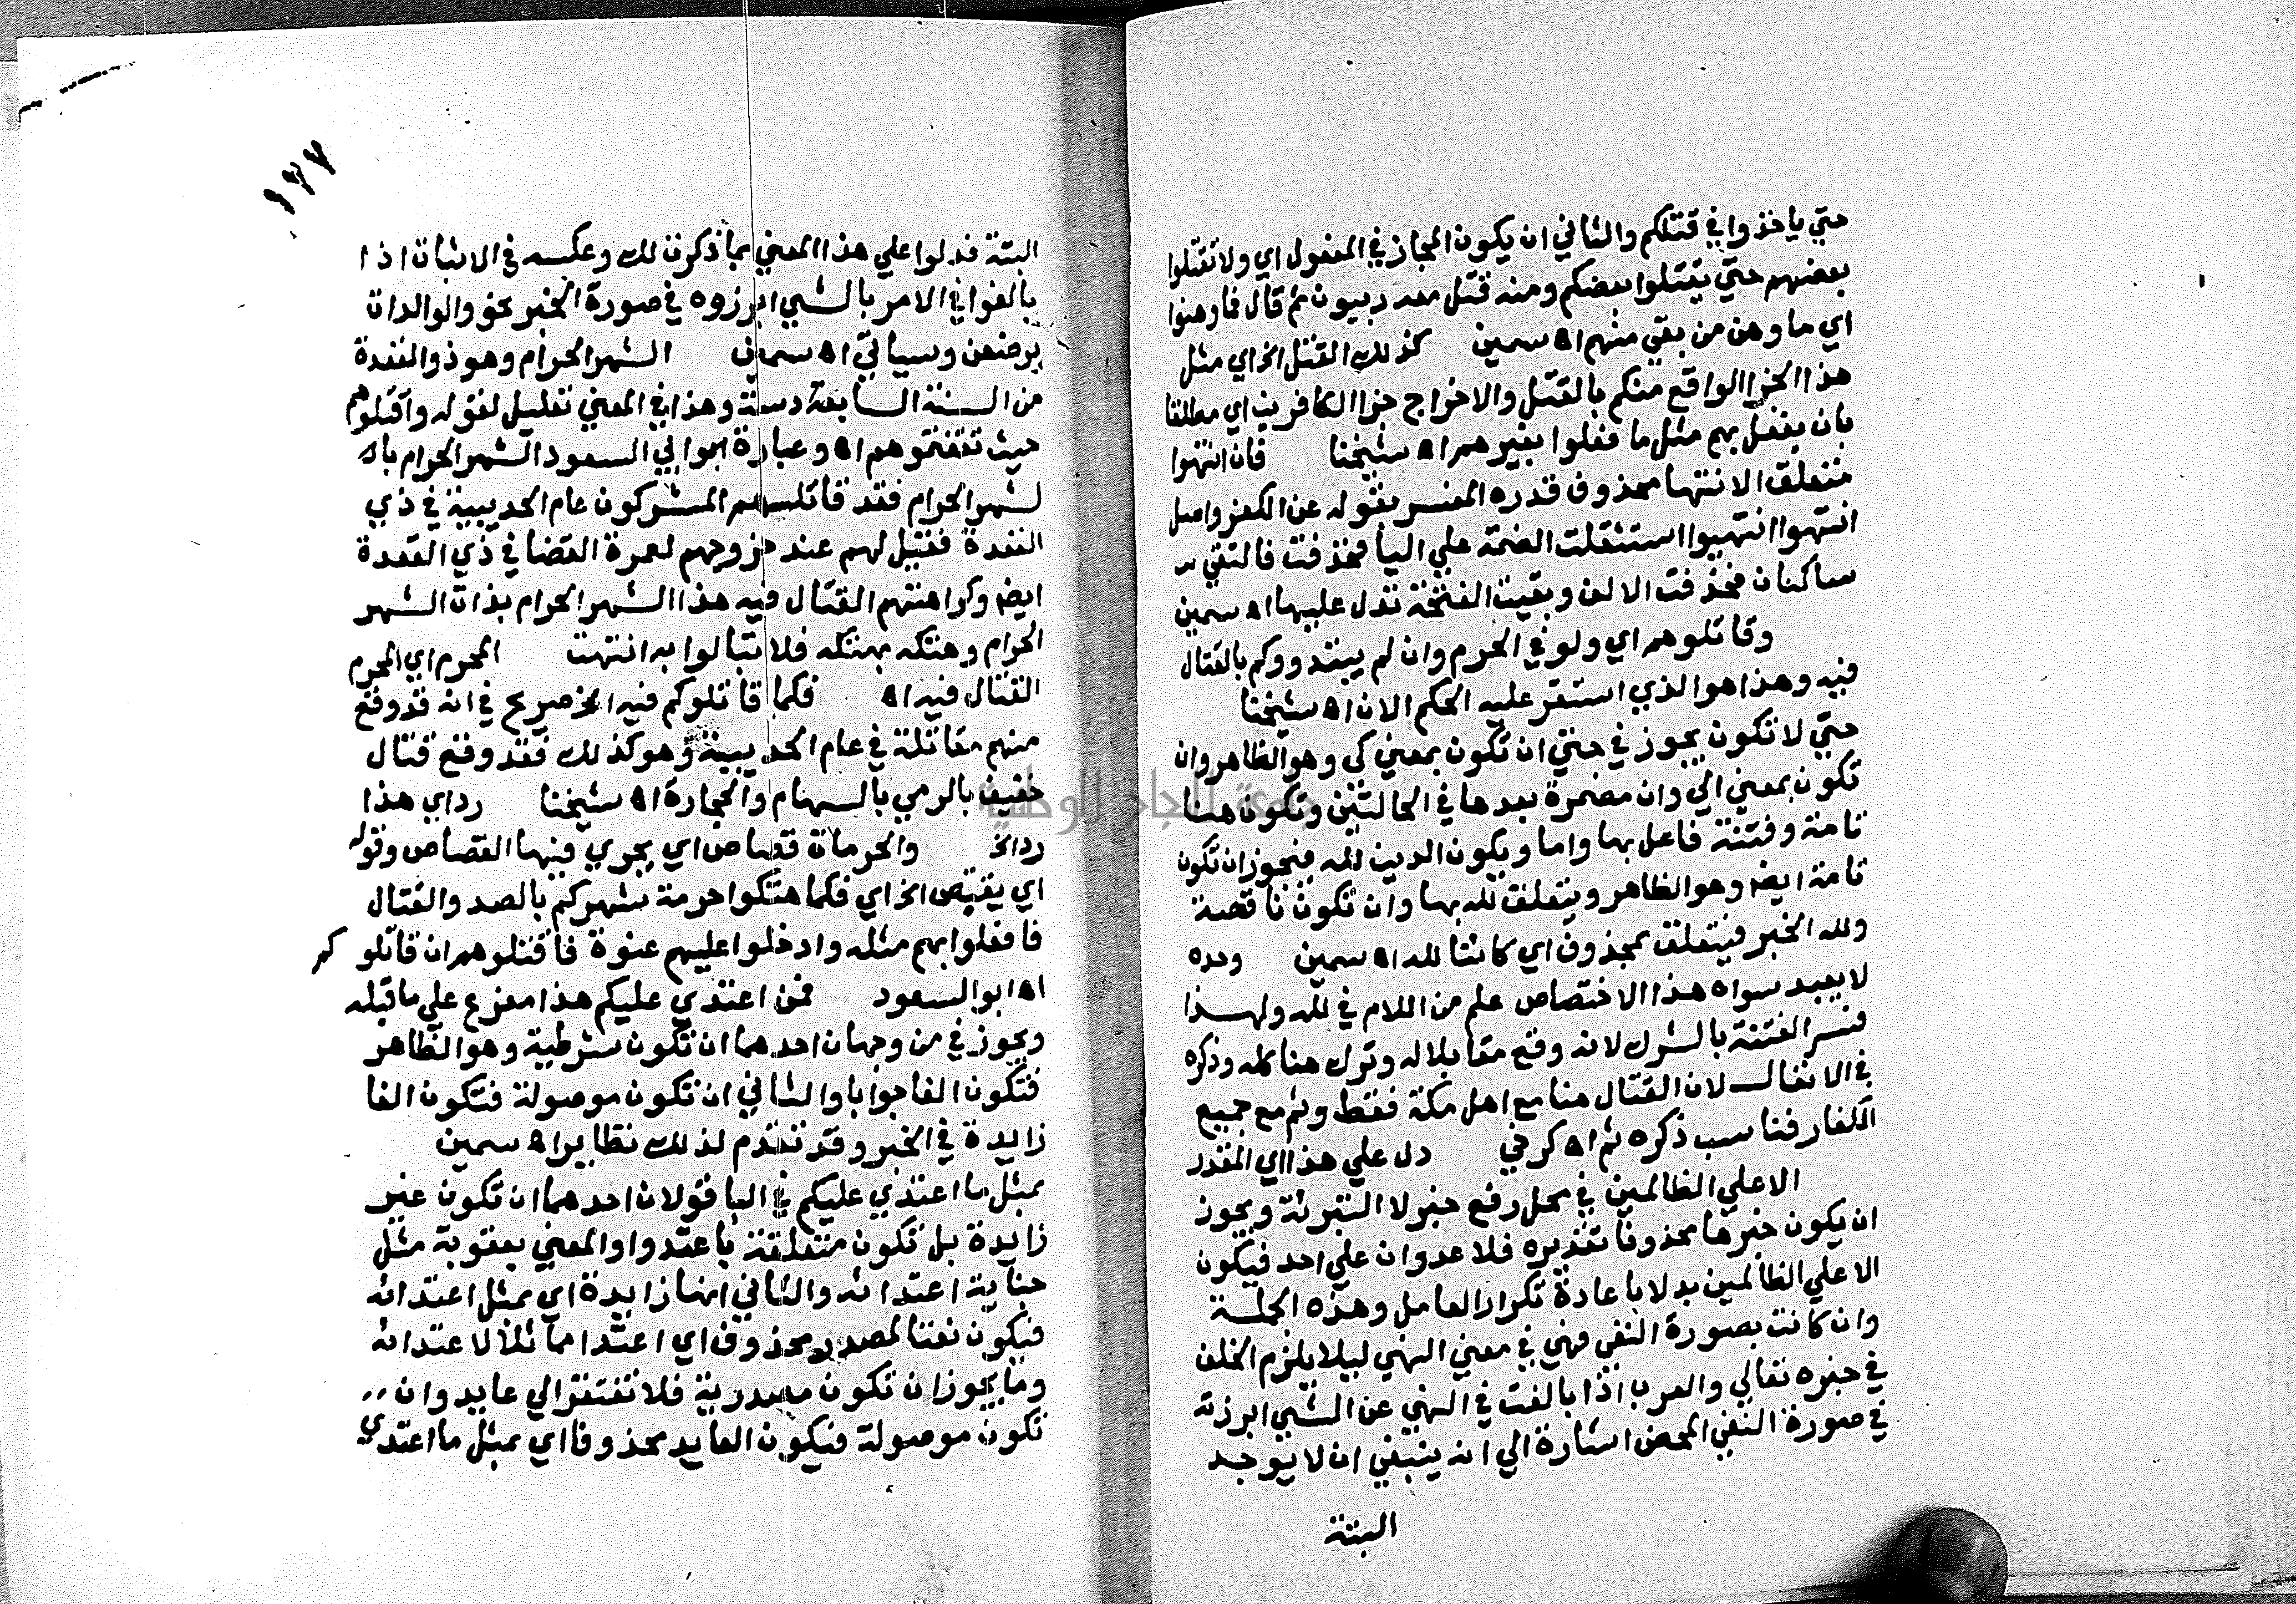 حتي ياخذوا في قتلكم والثاني ان يكون المجاز في المفعول اي ولا تقتلوا
بعضهم حتي يقتلوا بعضكم ومنه قتل معه ربيون ثم قال فما وهنوا
اي ما وهن من بقي منهم اه سمين كذلك القتل الخ اي مثل
هذا الجزا الواقع منكم بالقتل والاخراج جزا الكافرين اي مطلقا
بان يفعل بهم مثل ما فعلوا بغيرهم اه شيخنا فان انتهوا
متعلق الانتها محذوف قدره المفسر بقوله عن الكفر واصل
انتهوا انتهيوا استثقلت الضمة علي اليا فحذفت فالتقي س
ساكنان فحذفت الالف وبقيت الفتحة تدل عليها اه سمين
وقاتلوهم اي ولو في الحرم وان لم يبتدووكم بالقتال
فيه وهذا هو الذي استقر عليه الحكم الان اه شيخنا
حتي لا تكون يجوز في حتي ان تكون بمعني كي وهو الظاهر وان
تكون بمعني الي وان مضمرة بعدها في الحالتين وتكون هنا
تامة وفتنة فاعل بها واما ويكون الدين لله فيجوز ان تكون
تامة ايضا وهو الظاهر ويتعلق لله بها وان تكون ناقصة
ولله الخبر فيتعلق بمحذوف اي كائنا لله اه سمين وحده
لا يعبد سواه هذا الاختصاص علم من اللام في لله ولهذا
فسر الفتنة بالشرك لانه وقع مقابلا له وترك هنا كله وذكره
في الانفال لان القتال هنا مع اهل مكة فقط وثم مع جميع
الكفار فناسب ذكره ثم اه كرخي دل علي هذا اي المقدر
الا علي الظالمين في محل رفع خبر لا التبرئة ويجوز
ان يكون خبرها محذوفا تقديره فلا عدوان علي احد فيكون
الا علي الظالمين بدلا باعادة تكرار العامل وهذه الجملة
وان كانت بصورة النفي فهي في معني النهي ليلا يلزم الخلف
في خبره تعالي والعرب اذا بالغت في النهي عن الشيي ابرزته
في صورة النفي المحض اشارة الي انه ينبغي ان لا يوجد
البتة
١٦٧
البتة فدلوا علي هذا المعني بما ذكرت لك وعكسه في الاثبات اذا
بالغوا في الامر بالشيي ابرزوه في صورة الخبر نحو والوالدات
يرضعن وسياتي اه سمين الشهر الحرام وهو ذو القعدة
من السنة السابعة وهذا في المعني تعليل لقوله واقتلوهم
حيث ثقفتموهم اه وعبارة ابو الي السعود الشهر الحرام با
لشهر الحرام فقد قاتلهم المشركون عام الحديبية في ذي
القعدة فقيل لهم عند خروجهم لعمرة القضا في ذي القعدة
ايضا وكراهتهم القتال فيه هذا الشهر الحرام بذات الشهر
الحرام وهتكه بهتكه فلا تبالوا به انتهت المحرم اي المحرم
القتال فيه اه فكما قاتلوكم فيه الخ صريح في انه قد وقع
منهم مقاتلة في عام الحديبية وهو كذلك فقد وقع قتال
خفيف بالرمي بالسهام والحجارة اه شيخنا رد اي هذا
رد الخ والحرمات قصاص اي يجري فيها القصاص وقوله
اي يقتص الخ اي فكما هتكوا حرمة شهركم بالصد والقتال
فافعلوا بهم مثله وادخلوا عليهم عنوة فاقتلوهم ان قاتلوكم
اه ابو السعود فمن اعتدي عليكم هذا مفرع علي ما قبله
ويجوز في من وجهان احدهما ان تكون شرطية وهو الظاهر
فتكون الفا جوابا والثاني ان تكون موصولة فتكون الفا
زايدة في الخبر وقد تقدم لذلك نظاير اه سمين
بمثل ما اعتدي عليكم في البا قولان احدهما ان تكون غير
زايدة بل تكون متعلقة باعتدوا والمعني بعقوبة مثل
جناية اعتدائه والثاني انها زايدة اي بمثل اعتدائه
فتكون نعتا لمصدر محذوف اي اعتدا مماثلا لاعتدائه
وما يجوز ان تكون مصدرية فلا تفتقر الي عايد وان
تكون موصولة فيكون العايد محذوفا اي بمثل ما اعتدي